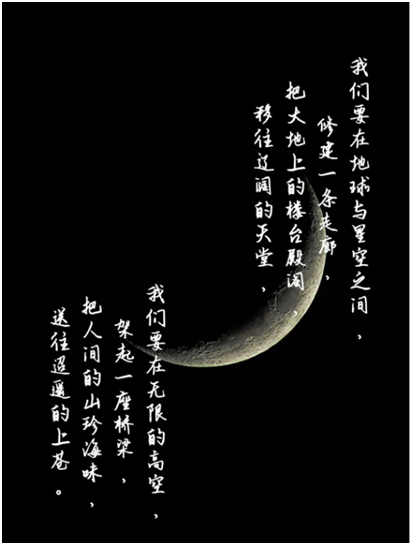 我们要在地球与星空之间，
修建一条走廊，
把大地上的楼台殿阁，
移往辽阔的天堂，
我们要在无限的高空，
架起一座桥梁，
把人间的山珍海味，
送往迢遥的上苍。